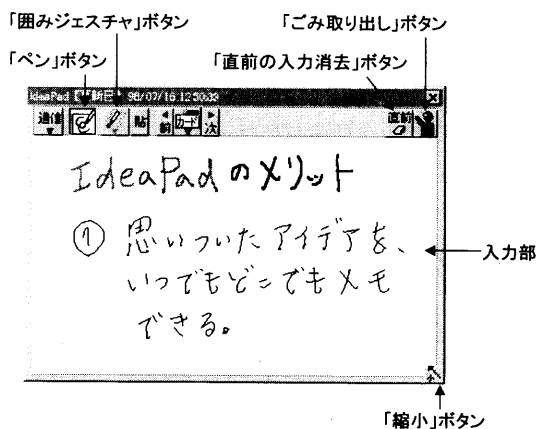 「囲みジェスチャ」ボタン
「ごみ取り出し」ボタン
「ペン」ボタン
「直前の入力消去」ボタン
IdeaPad 98/07/16
通信 貼 前 カード 次 直前
IdeaPadのメリット
① 思いついたアイデアを、
いつでもどこでもメモ
できる。
入力部
「縮小」ボタン